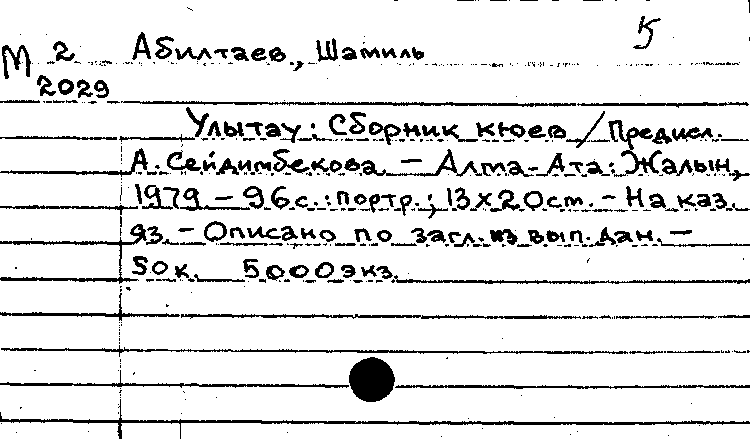 5
М 2 Абилтаев, Шамиль
2029
Улытау: Сборник кюев / Предисл.
А. Сейдимбекова. – Алма-Ата: Жалын,
1979. – 96 с.: портр.; 13х20 cm. – На каз.
яз. – Описано по загл. из вып. дан. –
50 к. 5000 экз.